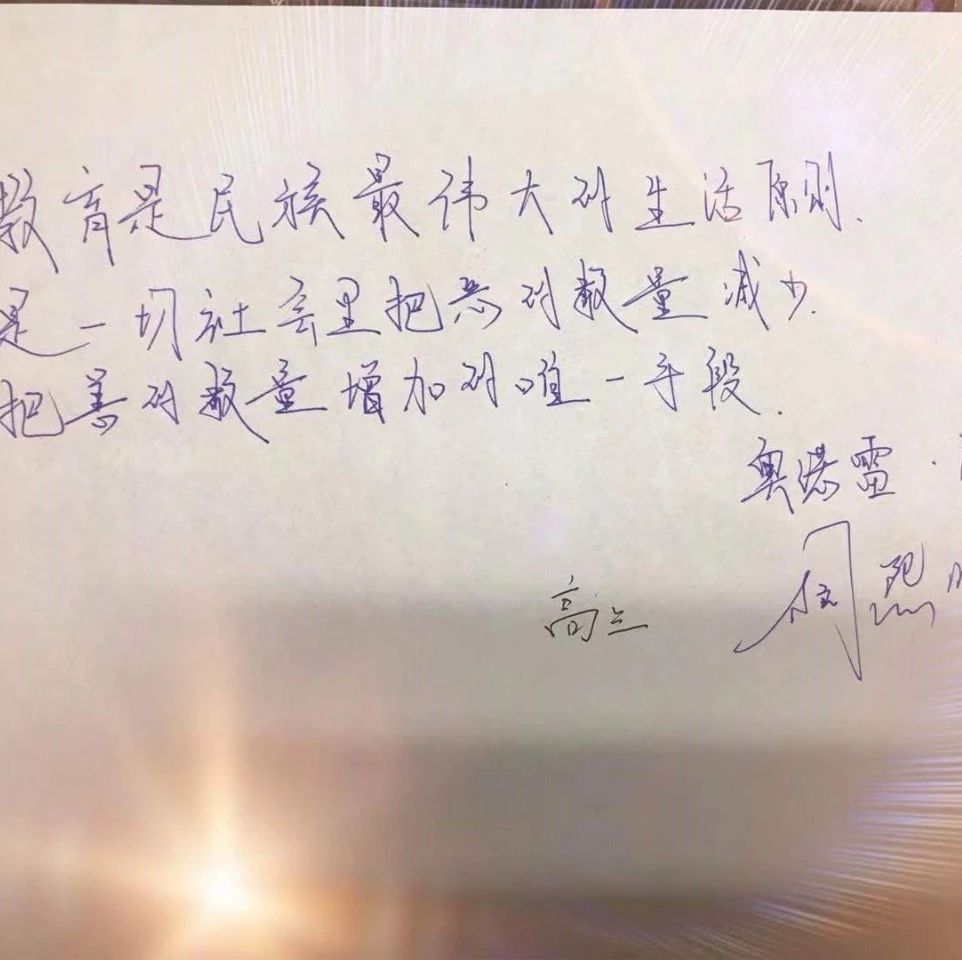 教育是民族最伟大的生活原则.
是一切社会里把恶的数量减少.
把善的数量增加的唯一手段.
奥诺雷·
高三
周熙